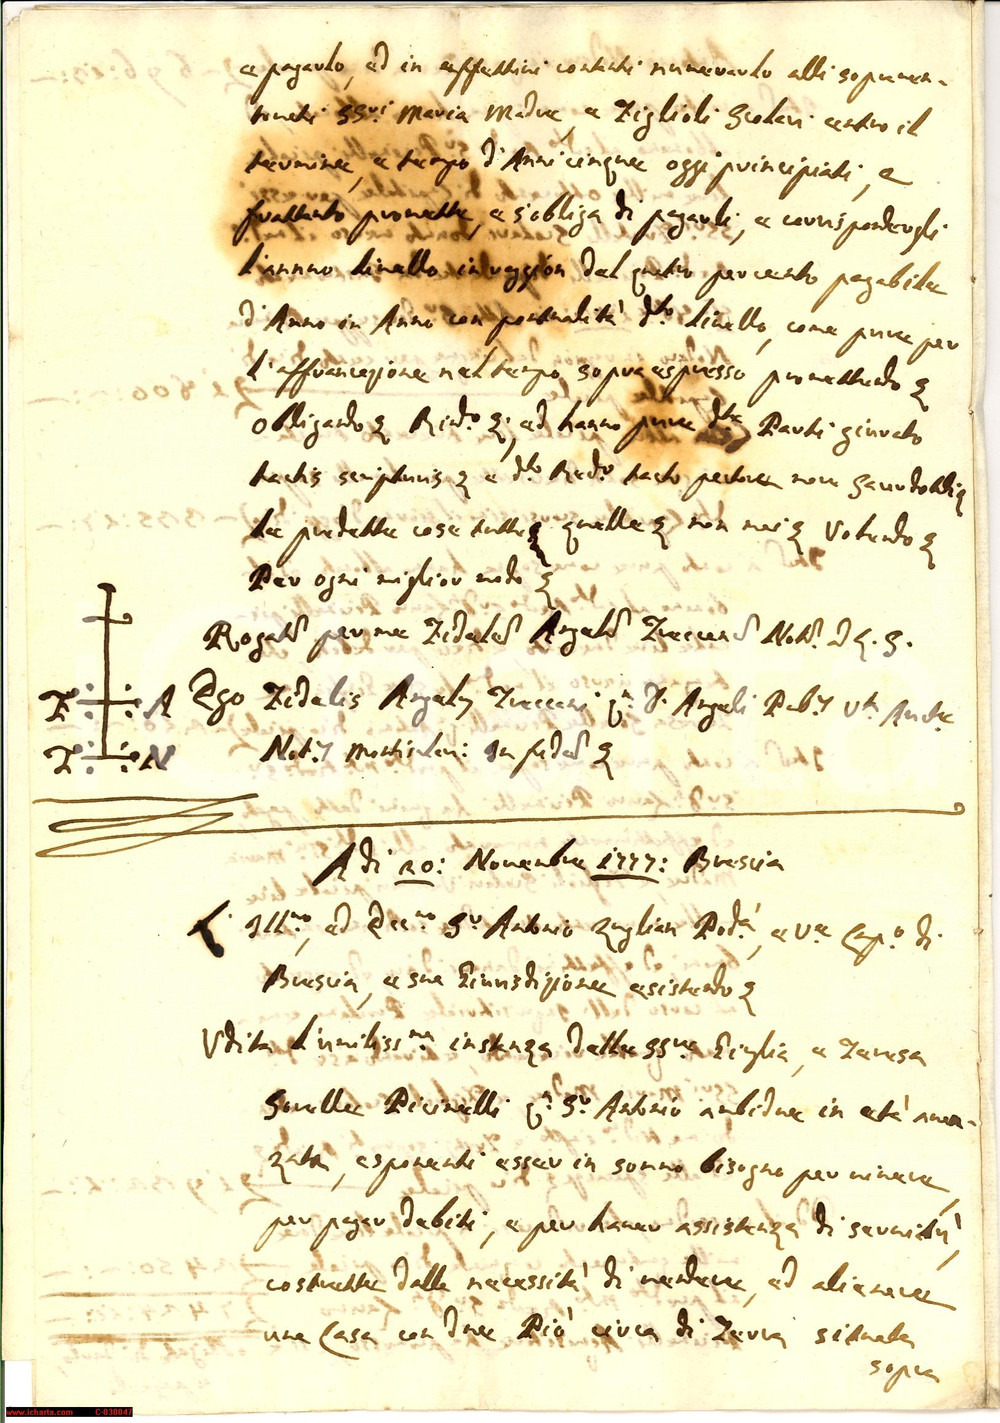 e pagarlo, ed in effettivi contanti numerarlo alli sopramen-
tovati SS.ri Maria Madre, e Figlioli Scolari entro il
termine, e tempo d'Anni cinque oggi principiati, e
frattanto promette, e s'obliga di pagarli, e corrispondergli
l'annuo livello in raggion del quatro per cento pagabile
d'Anno in Anno con pontualità d.to livello, come pure per
l'affrancazione nel tempo sopra espresso promettendo
obligando Rin.do ; ed hanno pure d.te Parti giurato
tactis scripturis e d.to Red.o tacto pectore more Sacerdotali
le predette cose tutte quelle non mai Volendo
Per ogni miglior modo
Rogat.o per me Fidele Angelo Treccani Nod.o
Ego Fidelis Angelus Treccani q.m Angeli Pub.s V.ta Auct.e
Not.s Monticlari: In fede
F A
T N
A di 20: Novembre 1777: Brescia
L' Ill.mo, ed Ecc.mo S.r Antonio Zuglian Pod.à, e V.e Cap.o di
Brescia, e sua Giurisdizione esistendo
Udita l'umiliss.ma instanza delle SS.re Giulia, e Teresa
Sorelle Picinelli q.m S.r Antonio ambidue in età avan-
zata, esponenti esser in sommo bisogno per vivere,
per pagar debiti, e per haver assistenza di servitù,
costrette dalla necessità di vendere, ed alienare
una Casa con due Piò circa di Terra situata
sopra
www.icharta.com C-030847